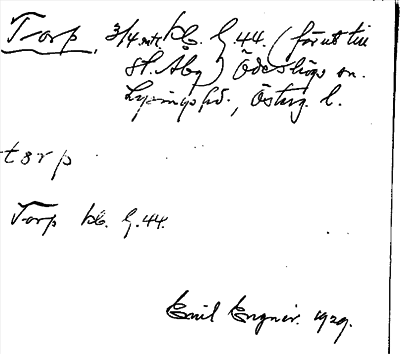 Torp, 3/4 mtl. kb. G. 44. (förut till
St. Åby) Ödeshögs sn.
Lysings hd., Östg. l.
torp
Torp kb. G. 44.
Emil Engner. 1929.